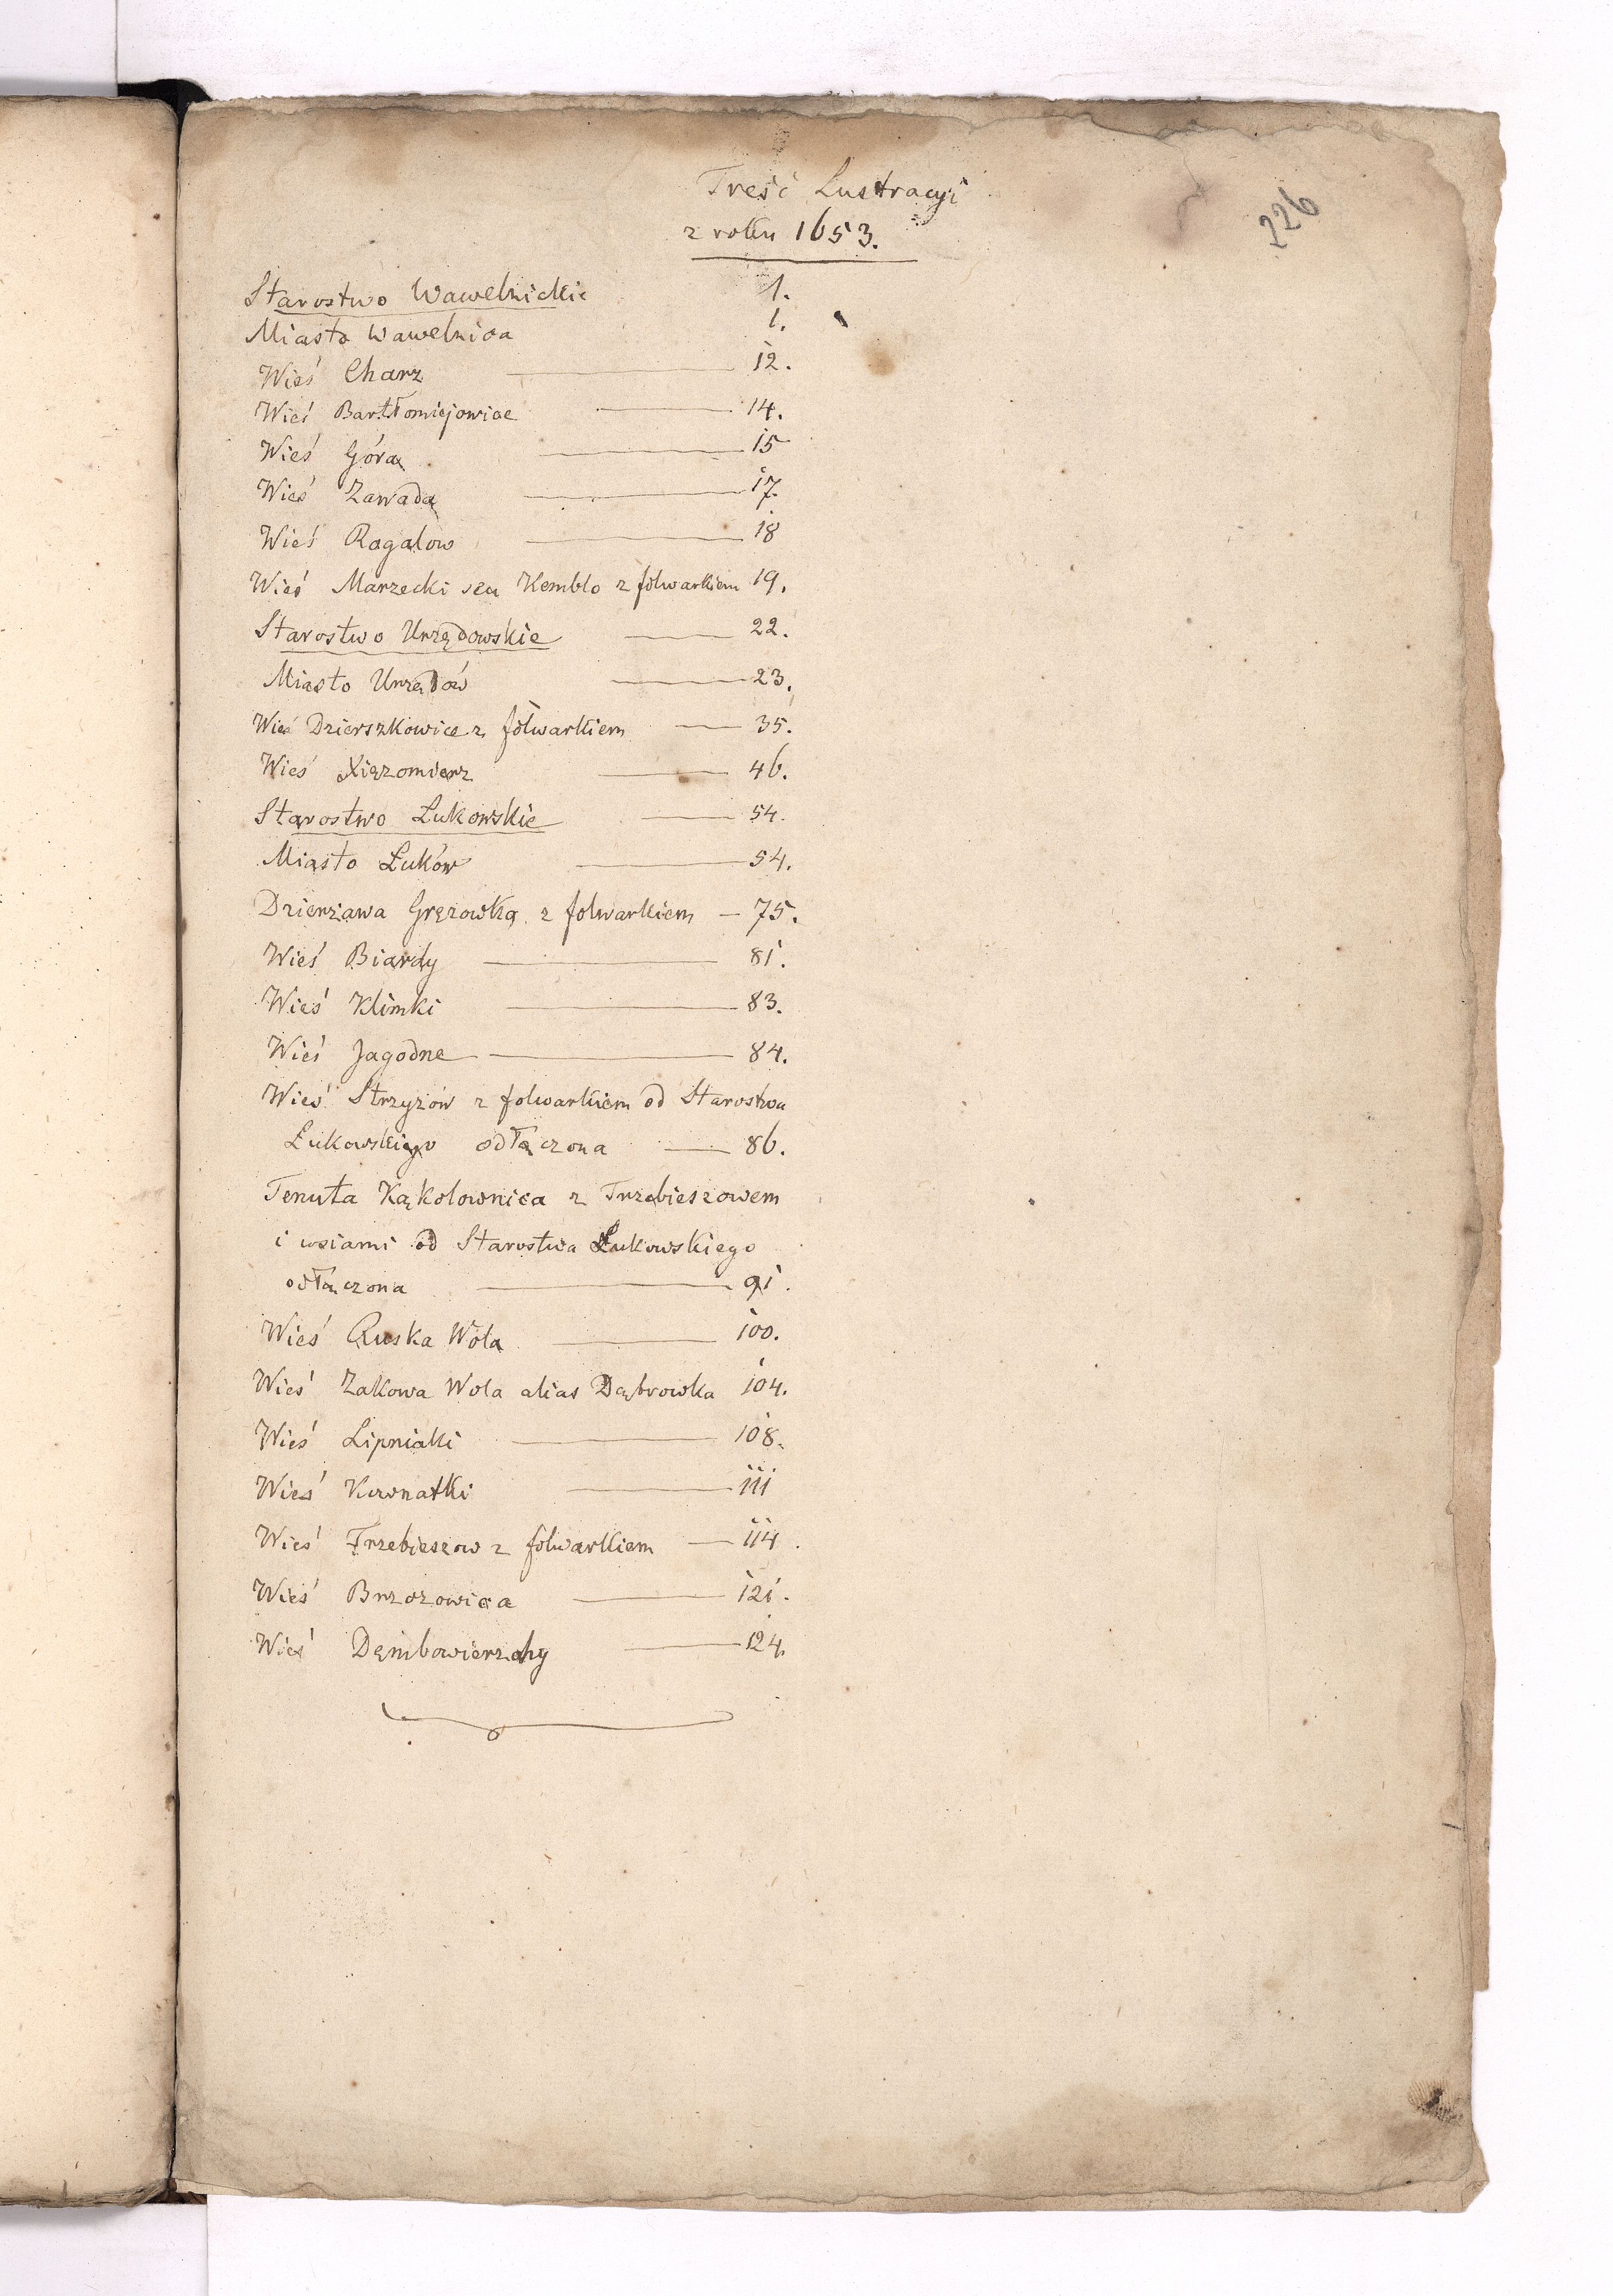 Treść Lustracyi
226
z roku 1653.
Starostwo Wawelnickie 1.
Miasto Wawelnica 1.
Wieś Charz 12.
Wieś Bartłomiejowice 14.
Wieś Góra 15
Wieś Zawada 17.
Wieś Rogalow 18
Wieś Marzecki seu Kemblo z folwarkiem 19.
Starostwo Urzędowskie 22.
Miasto Urzędów 23.
Wieś Dzierszkowice z folwarkiem 35.
Wieś Xiązomierz 46.
Starostwo Łukowskie 54.
Miasto Łuków 54.
Dzierzawa Gręzowka z folwarkiem 75.
Wieś Biardy 81.
Wieś Klimki 83.
Wieś Jagodne 84.
Wieś Strzyzów z folwarkiem od Starostwa
Łukowskiego odłączona 86.
Tenuta Kąkolownica z Trzebieszowem
i wsiami od Starostwa Łukowskiego
odłączona 91.
Wieś Ruska Wola 100.
Wieś Zakowa Wola alias Dąbrowka 104.
Wieś Lipniaki 108.
Wieś Kownatki 111
Wieś Trzebieszow z folwarkiem 114.
Wieś Brzozowica 121.
Wieś Dęmbowierzchy 124.